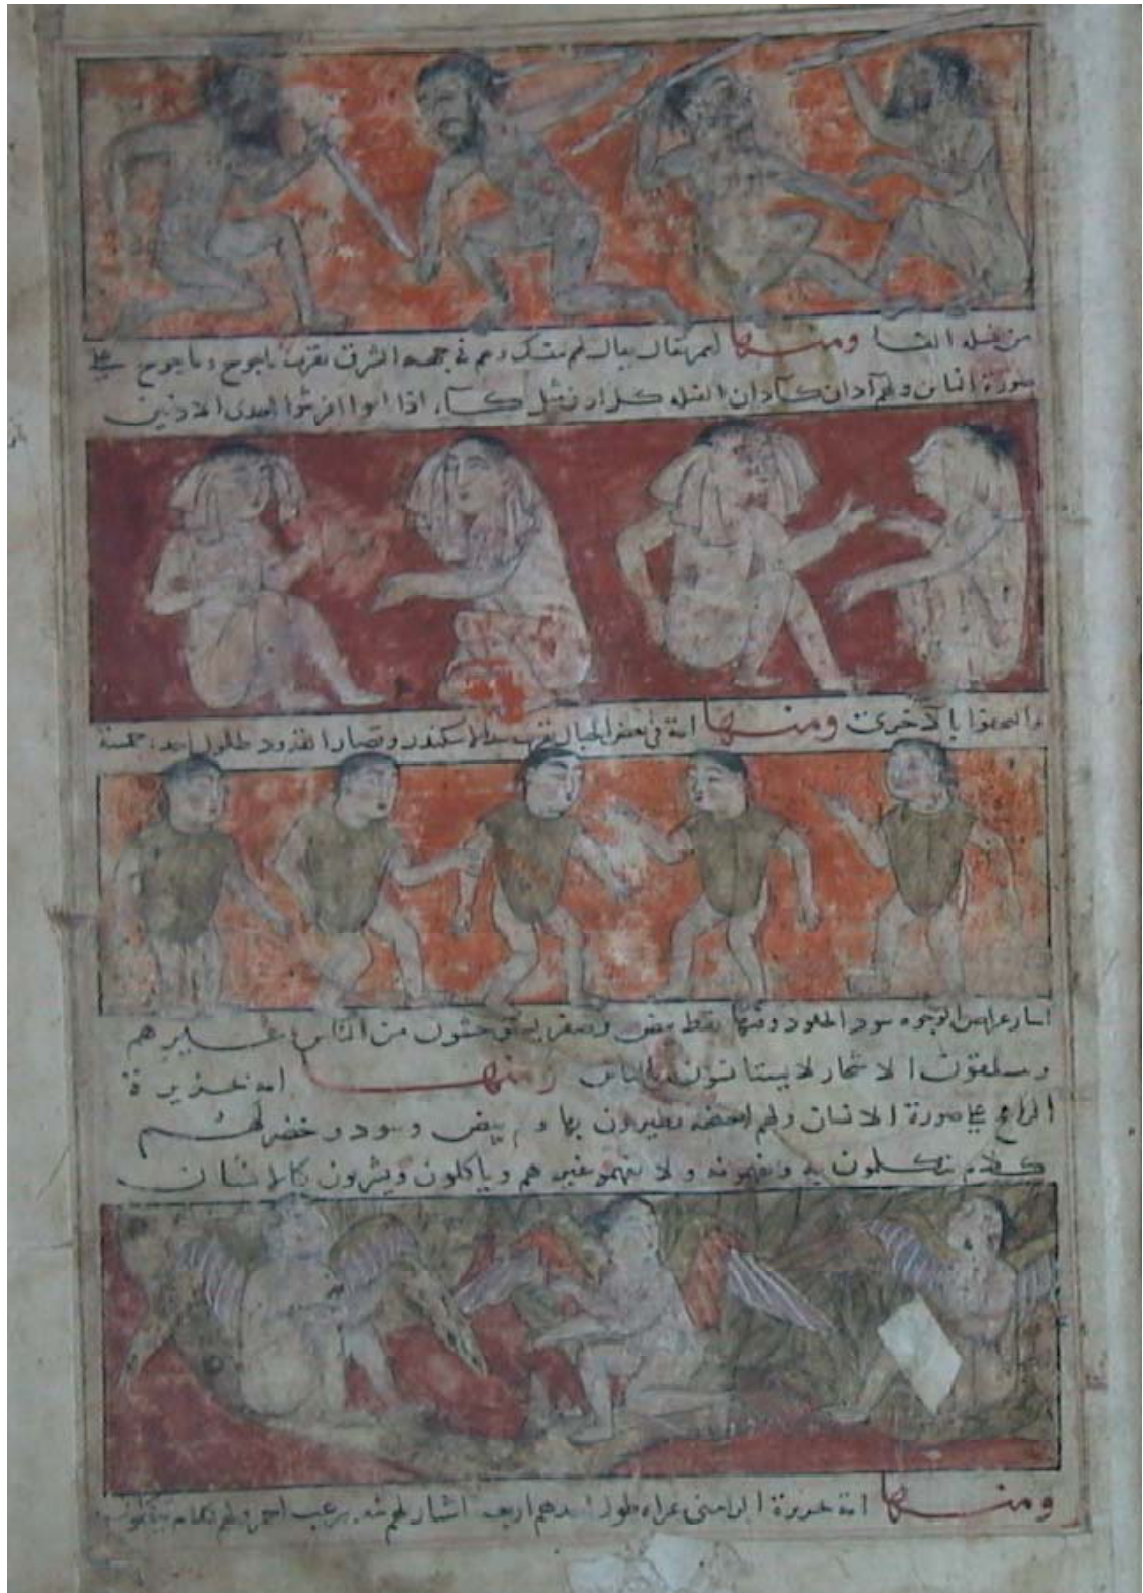 ومنها امم يقال لهم منسك وهم في جهة الشرق بقرب ياجوج وماجوج على
صورة الناس ولهم آذان كآذان الفيله كل اذن مثل كسآ، اذا ناموا افترشوا احدى الاذنين
والتحفوا بالاخرى ومنها امة في بعض الجبال بقرب سد الاسكندر قصار القدود طول احدهم خمسة
اشبار عراض الوجوه سود الجلود وفيها نقط بيض وصفر يتوحشون من الناس غيرهم
الاشجار لا يستانسون بالناس ومنها امة بجزيرة
الرامني على صورة الانسان ولهم اجنحة يطيرون بها وهم بيض وسود وخضر لهم
كلام يتكلمون به ويفهمونه ولا يفهمه غيرهم وياكلون ويشربون كالانسان
ومنها امة بجزيرة الرامني عراة طول احدهم اربعة اشبار لهم زغب احمر ولهم كلام